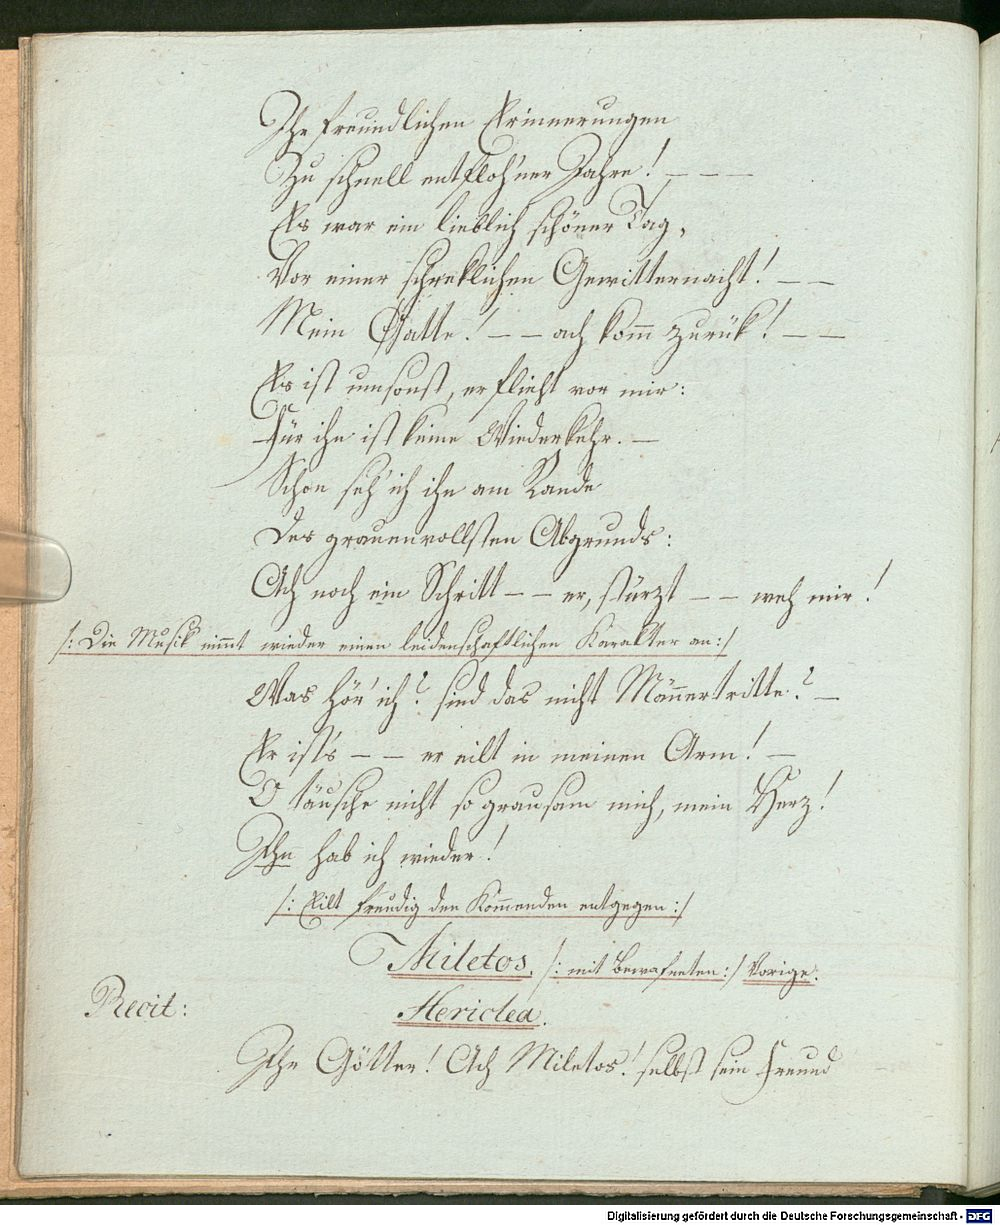 Ihr freundlichen Erinnerungen
Zu schnell entfloh'ner Jahre! – – –
Es war ein lieblich schöner Tag,
Vor einer schreklichen Gewitternacht! – –
Mein Gatte! – – ach kom̄ zurük! – –
Es ist umsonst, er flieht vor mir:
Für ihn ist keine Wiederkehr. –
Schon seh' ich ihn am Rande
Des grauenvollsten Abgrunds:
Ach noch ein Schritt – – er, stürzt – – weh mir!
/: Die Musik nim̄t wieder einen leidenschaftlichen Karakter an :/
Was hör' ich? sind das nicht Män̄ertritte? –
Er ist's – – er eilt in meinen Arm! –
O täusche nicht so grausam mich, mein Herz!
Ihn hab ich wieder!
/: Eilt freudig den Kom̄enden entgegen :/
Miletos. /: mit Bewafneten :/ Vorige.
Recit:
Hericlea.
Ihr Götter! Ach Miletos! selbst sein Freund
Digitalisierung gefördert durch die Deutsche Forschungsgemeinschaft - DFG